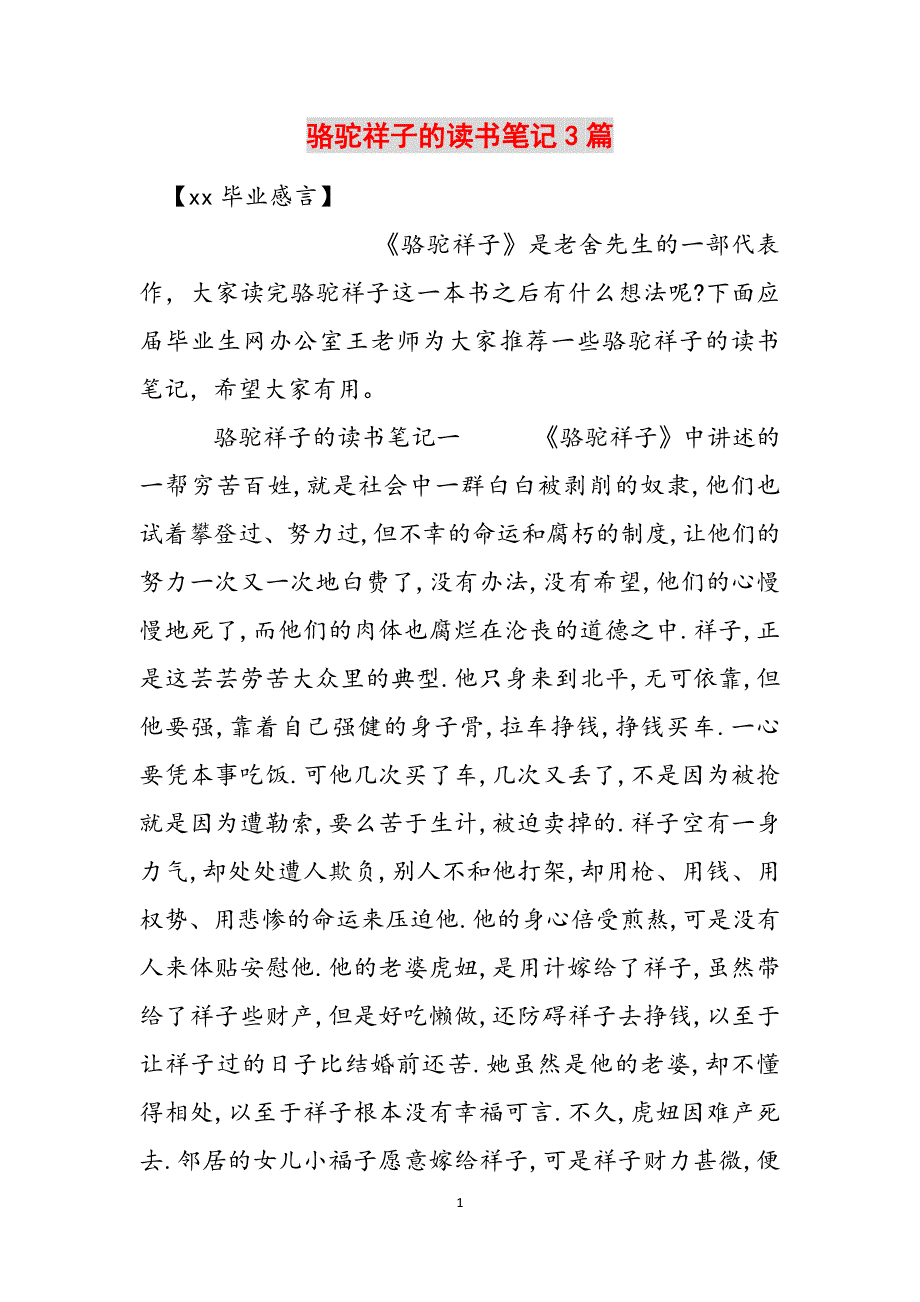 骆驼祥子的读书笔记3篇
【xx毕业感言】
《骆驼祥子》是老舍先生的一部代表
作，大家读完骆驼祥子这一本书之后有什么想法呢?下面应
届毕业生网办公室王老师为大家推荐一些骆驼祥子的读书
笔记，希望大家有用。
骆驼祥子的读书笔记一 《骆驼祥子》中讲述的
一帮穷苦百姓,就是社会中一群白白被剥削的奴隶,他们也
试着攀登过、努力过,但不幸的命运和腐朽的制度,让他们的
努力一次又一次地白费了,没有办法,没有希望,他们的心慢
慢地死了,而他们的肉体也腐烂在沦丧的道德之中.祥子,正
是这芸芸劳苦大众里的典型.他只身来到北平,无可依靠,但
他要强,靠着自己强健的身子骨,拉车挣钱,挣钱买车.一心
要凭本事吃饭.可他几次买了车,几次又丢了,不是因为被抢
就是因为遭勒索,要么苦于生计,被迫卖掉的.祥子空有一身
力气,却处处遭人欺负,别人不和他打架,却用枪、用钱、用
权势、用悲惨的命运来压迫他.他的身心倍受煎熬,可是没有
人来体贴安慰他.他的老婆虎妞,是用计嫁给了祥子,虽然带
给了祥子些财产,但是好吃懒做,还防碍祥子去挣钱,以至于
让祥子过的日子比结婚前还苦.她虽然是他的老婆,却不懂
得相处,以至于祥子根本没有幸福可言.不久,虎妞因难产死
去.邻居的女儿小福子愿意嫁给祥子,可是祥子财力甚微,便
1